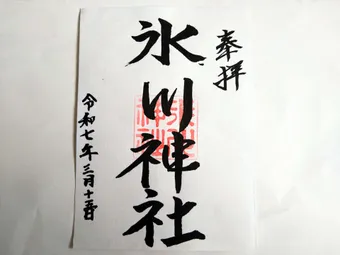 奉拝
氷川神社
令和七年三月十五日